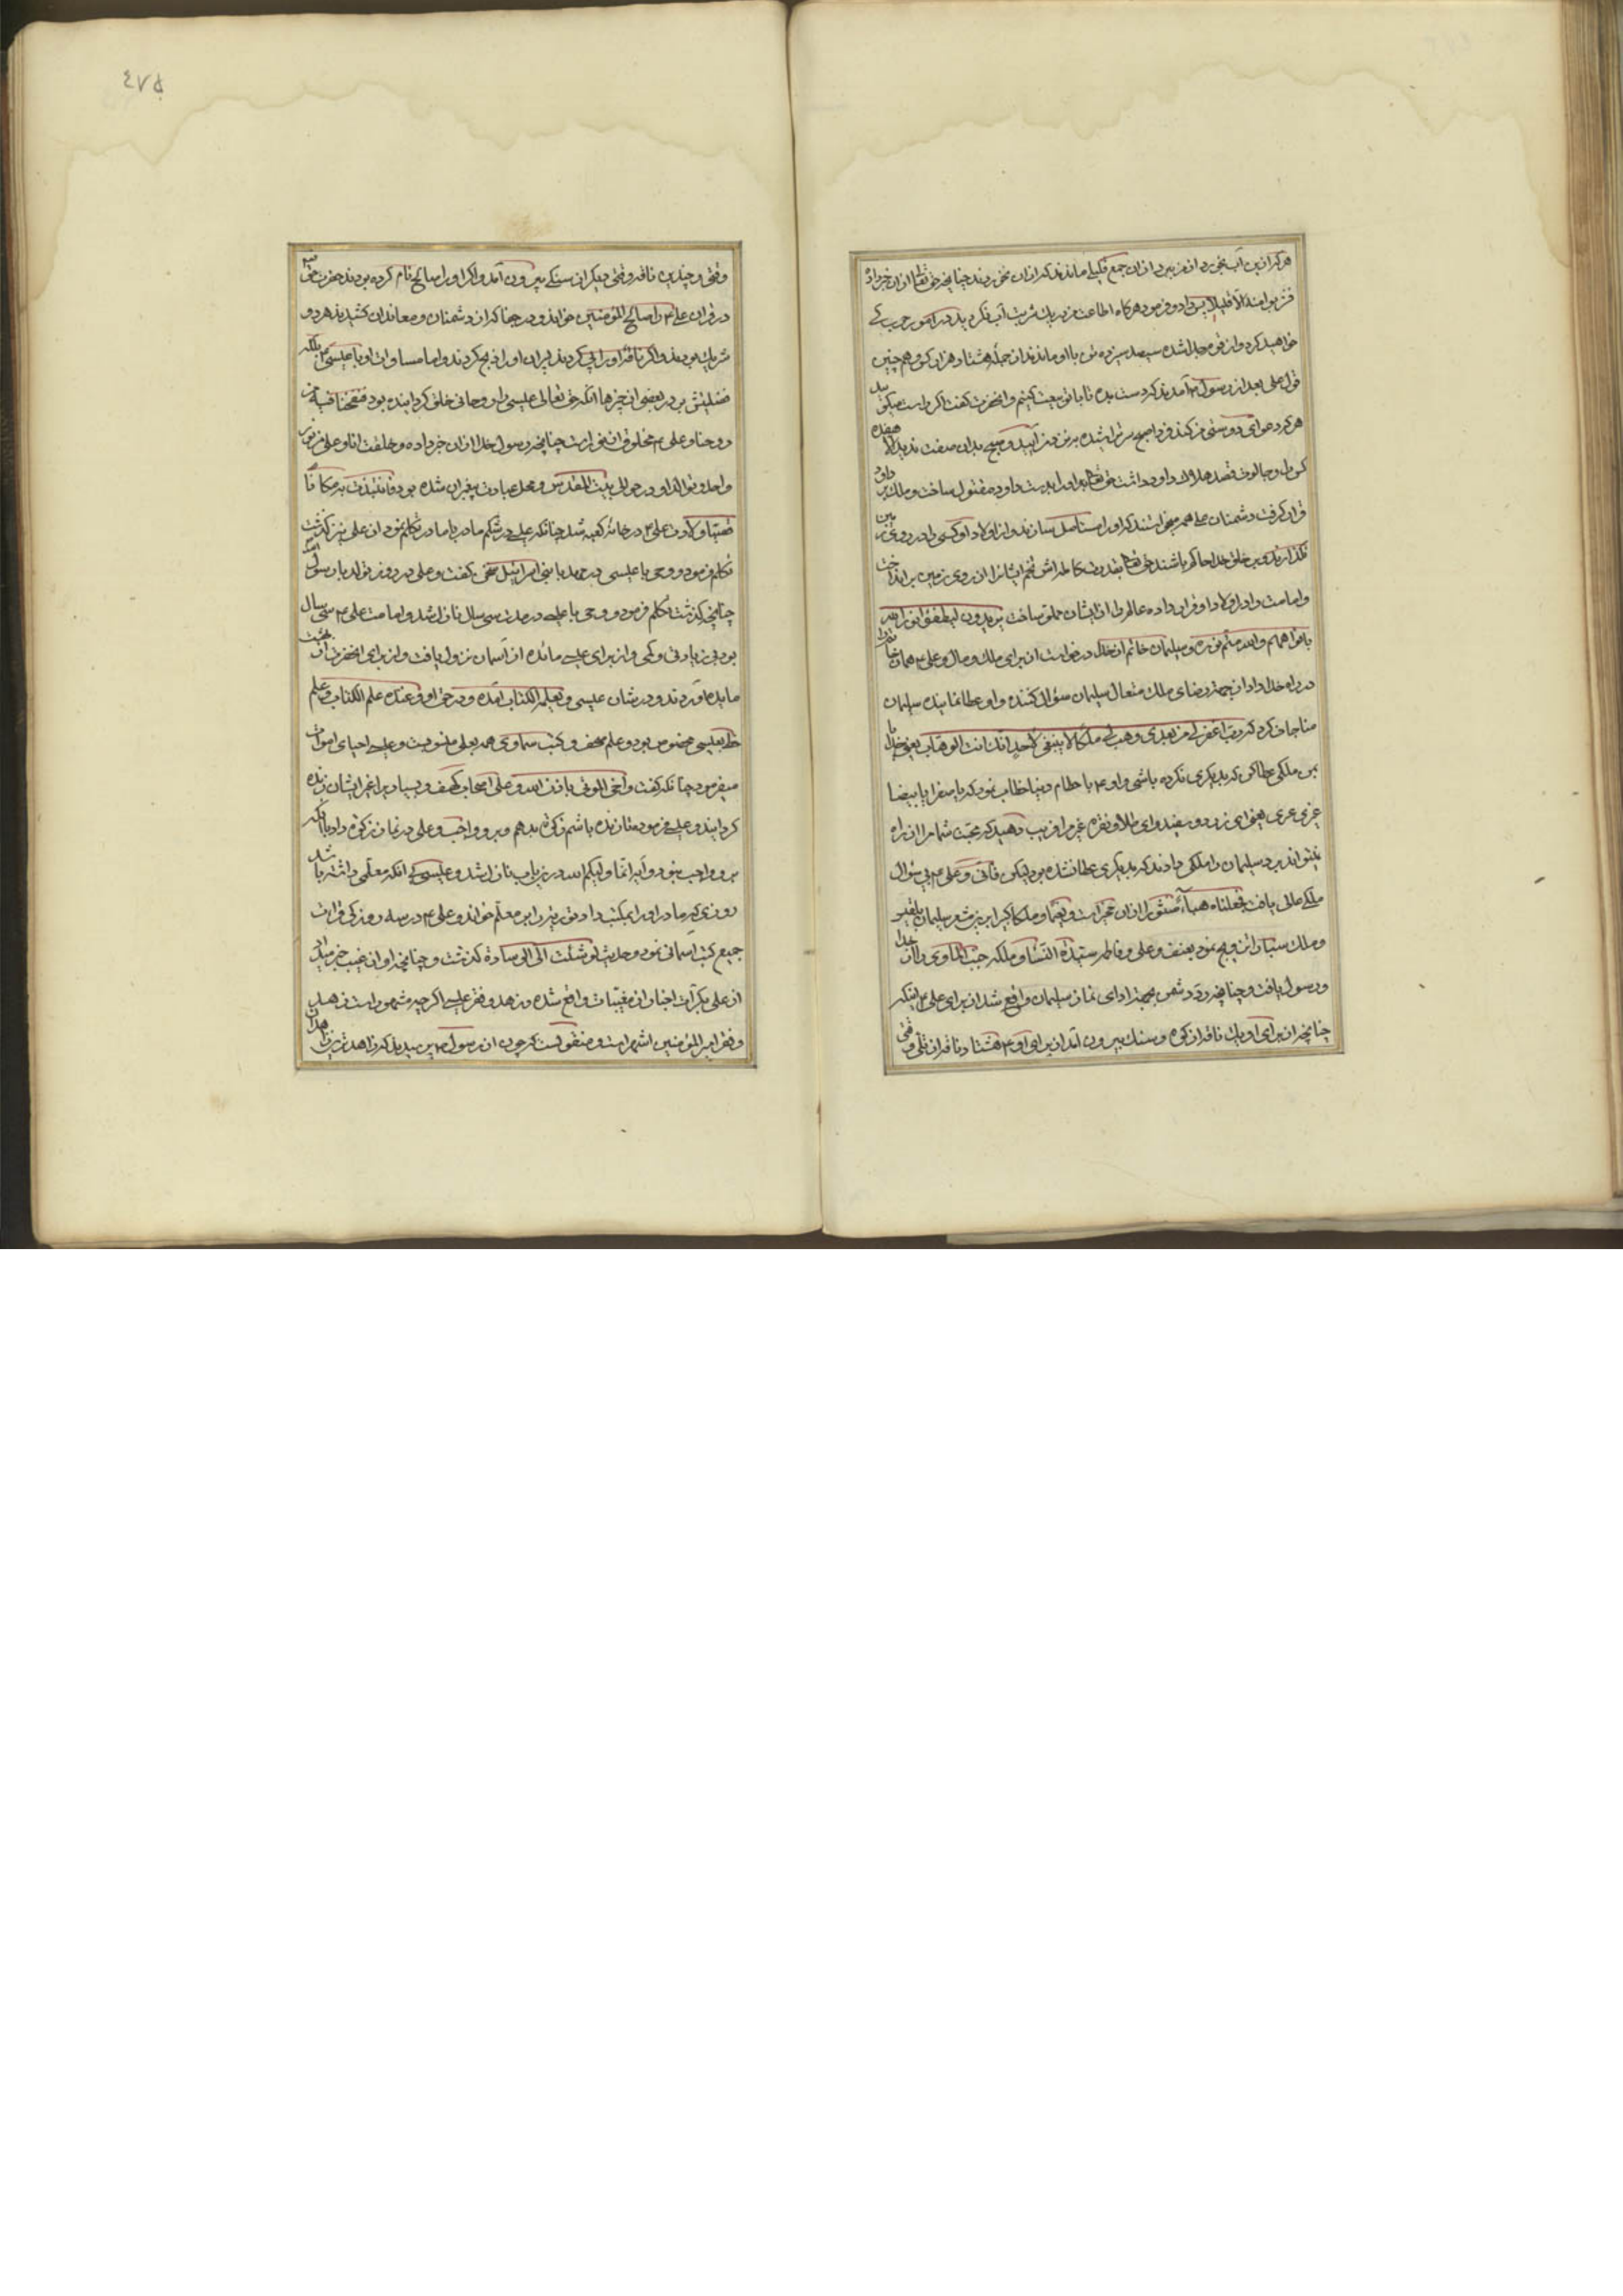 هر که ازین آب بخورد از من نبرد ازان جمع قلیلی ماندند که ازان نخوردند چنانچه حق تعالی ازان خبر داد
فشربوا منه الا قلیلا پس داود فرمود هرگاه اطاعت من در یک شربت آب نکردید در امور حرب کی
خواهید کرد و از من جدا شده سیصد سیزده تن با او ماندند از جمله هشتاد هزار کس و همچنین
قول علی بعد از رسول آمدند که دست بده تا با تو بیعت کنیم و آنحضرت گفت اگر راست میگوئید
هر که دعوای دوستی من کند فردا صبح سر تراشیده بر من آئید و صبح بدان صفت ندید الا هفده
کس را و جالوت قصد هلاک داود داشت حق تعالی او را بدست داود مقتول ساخت و ملک بر داود
قرار گرفت دشمنان علی هم میخواستند که او را مستأصل سازند و از اولاد او کسی را در روی زمین
نگذارند و بر خلق خدا حاکم باشند حق تعالی بقدرت کامله اش تخم ایشان را از روی زمین برانداخت
و امامت را در اولاد او قرار داده عالم را از ایشان مملو ساخت یریدون لیطفؤا نور الله
بافواههم والله متم نوره و سلیمان خاتم از خدا درخواست از برای ملک و مال و علی همان خاتم را
در راه خدا داد از جهت رضای ملک متعال سلیمان سؤال کننده و او عطا نماینده سلیمان
مناجات کرد که رب اغفر لی وهب لی ملکا لا ینبغی لاحد من بعدی انک انت الوهاب یعنی خدایا
بمن ملکی عطا کن که بدیگری نکرده باشی و او با حطام دنیا خطاب نمود که یا صفرا یا بیضا
غری غیری یعنی ای زرد و سفید و ای طلا و نقره غیر مرا فریب دهید که محبت شما مرا از راه
نتواند برد سلیمان را ملکی دادند که بدیگری عطا نشده بود لیکن فانی و علی بی سؤال
ملکی عالی یافت فجعلناه هباء منثورا ازان مخبر است و نعیما و ملکا کبیرا برین مشعر سلیمان بلقیس
و ملک سبا را تزویج نمود بعنف و علی و فاطمه سیدة النساء و ملکه جنت المأوی را از خدا
و رسول یافت و چنانچه رد شمس بجهة ادای نماز سلیمان واقع شد از برای علی
چنانچه از برای او یک ناقه از کوه و سنگ بیرون آمد از برای او هشتاد ناقه از تلی وقتی
وقتی و چندین ناقه وقتی دیگر از سنگی بیرون آمد و اگر او را صالح نام کرده بودند حضرت حق
در قرآن علی را صالح المؤمنین خواند و در جفا که از دشمنان و معاندان کشیدند هر دو
شریک بودند و اگر ناقه او را پی کردند پسران او را ذبح کردند و اما مساوات او با عیسی بلکه
فضیلتش بر در بعضی از چیزها آنکه حق تعالی عیسی را روحانی خلق کردانیده بود فنفخنا فیه من
روحنا و علی مخلوق از نور است چنانچه رسول خدا ازان خبر داده و خلقت انا و علی من نور
واحد و تولد او در حوالی بیت المقدس و محل عبادت پیغمبران شده بود فانتبذت به مکانا
قصیا و ولادت علی در خانه کعبه شد چنانکه عیسی در شکم مادر با مادر تکلم نمود از علی نیز گذشت
تکلم فرمود و وحی با عیسی در مهد با بنی اسرائیل سخن گفت و علی در روز تولد با رسول
چنانچه گذشت تکلم فرمود و وحی با عیسی در مدت سی سال نازل شد و امامت علی سی سال
بود بی زیادتی و کمی و از برای عیسی مائده از آسمان نزول یافت و از برای آنحضرت از بهشت
مایده آوردند و در شان عیسی و یعلمه الکتاب آمده و در حق او و عنده علم الکتاب و علم
خط بعیسی مخصوص بود و علم صحف و کتب سماوی همه بعلی منسوبست و عیسی احیای اموات
میفرمود چنانکه گفت و احی الموتی باذن الله و علی اصحاب کهف و بسیاری را غیر ایشان زنده
گردانید و عیسی فرمود تا زنده باشم زکوة بدهم و برو واجب و علی در نماز زکوة داد با آنکه
برو واجب نبود و آیه انما ولیکم الله در باب نازل شد و عیسی بی آنکه معلمی داشته باشد
روزی که مادر او را بمکتب داد توریة را بر معلم خواند و علی در سه روزگی قرائت
جمیع کتب آسمانی نمود و حدیث لو ثنیت لی الوسادة گذشت و چنانچه او از غیب خبر میداد
از علی بکرات اخبار از مغیبات واقع شده و زهد و فقر عیسی اگرچه مشهور است زهد
و فقر امیرالمؤمنین اشهر است و منقولست که چون از رسول پرسیدند که زاهدترین